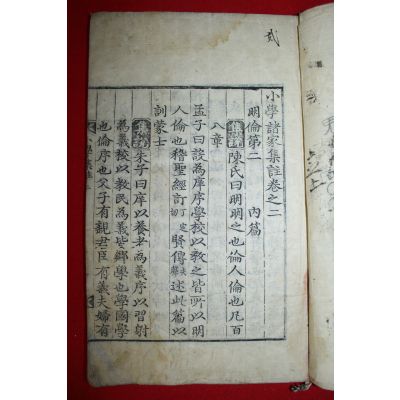 貳
小學諸家集註卷之二
明倫第二 內篇
集解 陳氏曰明明之也倫人倫也凡百
八章
孟子曰設為庠序學校以敎之皆所以明
人倫也稽聖經訂丁定切賢傳去聲述此篇以
訓蒙士
集解 朱子曰庠以養老為義序以習射
為義校以敎民為義皆鄉學也學國學
也倫序也父子有親君臣有義夫婦有